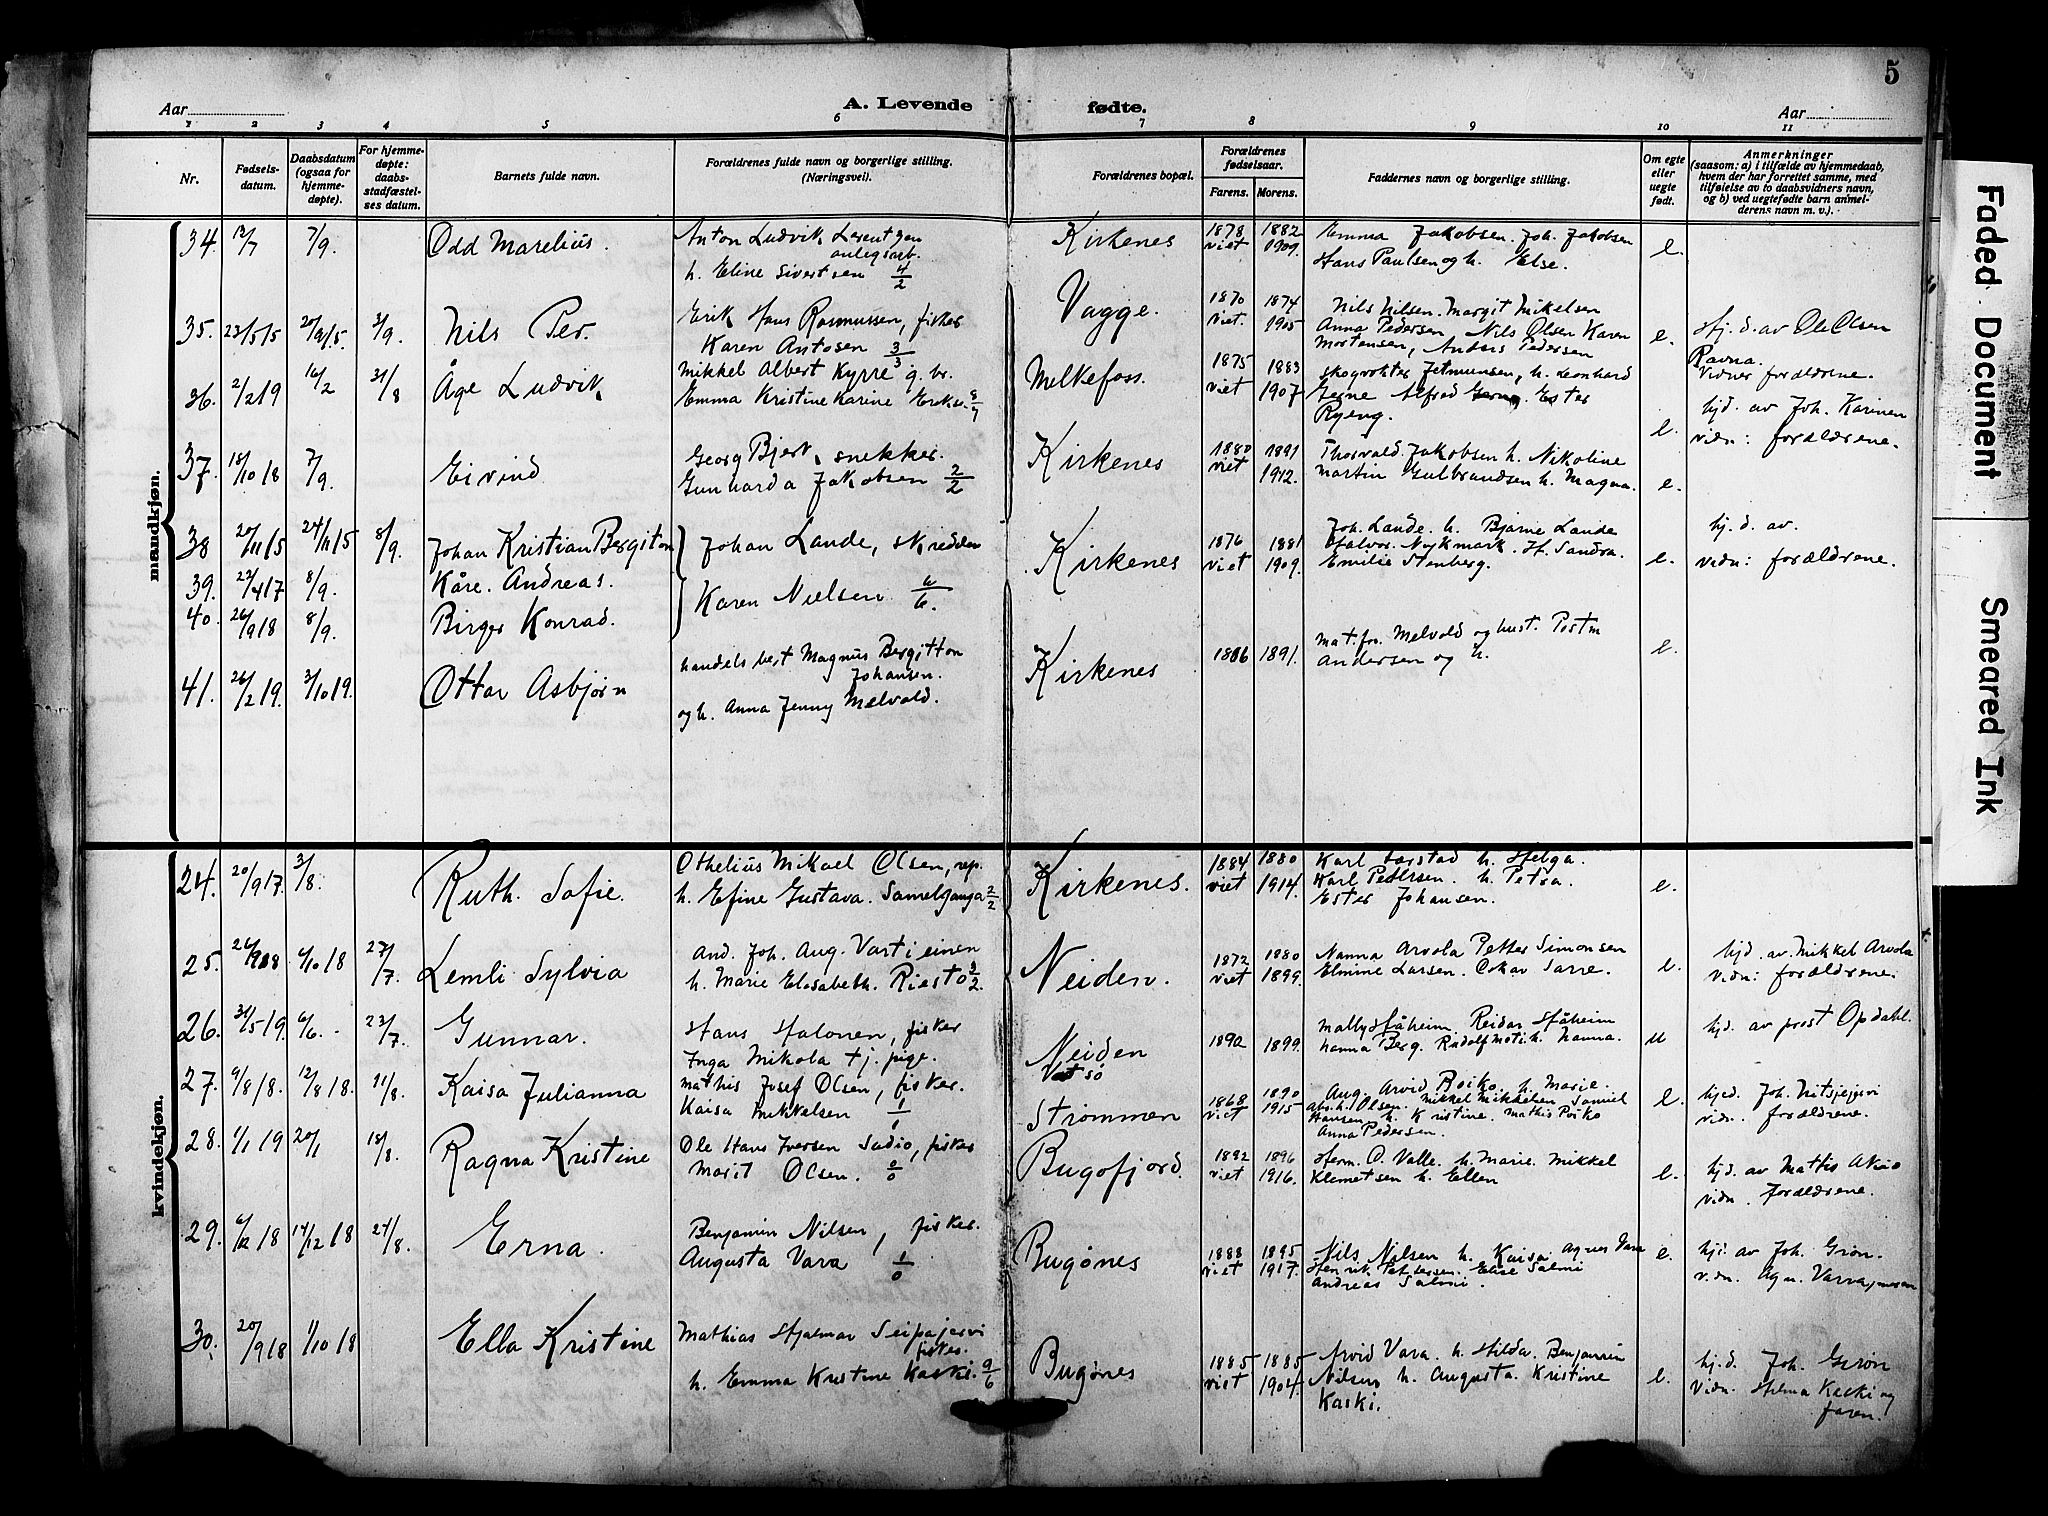 5
Aar
A. Levende
fødte.
Aar
1 2 3 4 5 6 7 8 9 10 11
Nr.
Fødsels-
datum.
Daabsdatum
(ogsaa for
hjemme-
døpte).
For hjemme-
døpte:
daabs-
stadfæstel-
ses datum.
Barnets fulde navn.
Forældrenes fulde navn og borgerlige stilling.
(Næringsvei).
Forældrenes bopæl.
Forældrenes
fødselsaar.
Farens. Morens.
Faddernes navn og borgerlige stilling.
Om egte
eller
uegte
født.
Anmerkninger
(saasom: a) i tilfælde av hjemmedaab,
hvem der har forrettet samme, med
tilføielse av to daabsvidners navn,
og b) ved uegtefødte barn anmel-
derens navn m. v.).
mandkjøn.
34. 7/9. Odd Marelius.
Anton Ludvik
h. Eline Sivertsen 4/2
Kirkenes
1878 1882
viet 1909.
Emma Jakobsen. Joh. Jakobsen
Hans Paulsen og h. Else.
e.
35. 3/9. Nils Per.
Erik Hans Rasmussen, fisker
Karen Antosen 3/3
Vagge.
1870 1874
viet. 1905
Nils Nilsen. Margit Mikelsen
Anna Pedersen, Nils Olsen Karen
Mortensen, Anders Pedersen
e.
Hj. d. av Ole Olsen
Ravna.
vidner forældrene.
36. 2/2 19 16/2 31/8 Åge Ludvik
Mikkel Albert Kyrre g. br.
Emma Kristine Karine
Melkefoss.
1875 1883
viet 1907
h. Leonhard
Alfred Ester
Ryeng.
e.
hjd. av Joh. Karinen
vidn: forældrene.
37. 18/10 18 7/9. Eivind
Georg Bjerk, snekker.
Gunharda Jakobsen 2/2
Kirkenes
1880 1891
viet 1912.
Thorvald. Jakobsen h. Nikoline
Martin Gulbrandsen h. Magna.
e.
38 20/11 15 24/11 15 8/9. Johan Kristian Bergiton
Johan Lande, skredder
Kirkenes
1876 1881
viet 1909.
Joh. Lande. h. Bjarne Lande
Halvor. Nykmark. H. Sandra.
Emilie Stenberg.
e.
hj. d. av.
vidn: forældrene.
39. 23/4 17 8/9. Kåre. Andreas.
Karen Nielsen
40. 26/9 18 8/9. Birger Konrad.
41. 26/2 19. 3/10 19. Ottar Asbjørn
handels best Magnus Bergitton
Johansen.
og h. Anna Jenny Melvold.
Kirkenes
1886 1891.
mat. for. Melvold og hust. Postm
Andersen og h.
e.
kvindekjøn.
24. 20/9 17. 3/8. Ruth. Sofie.
Othelius Mikael Olsen, rep.
h. Efine Gustava. 2/2
Kirkenes.
1884 1880
viet 1914.
Karl h. Helga.
Karl Petersen. h. Petra.
Ester Johansen.
e.
25. 6/10 18 27/7. Lemli Sylvia
And. Joh. Aug. Vartieinen
h. Marie Elisabeth. Riesto
Neiden.
1872 1880
viet 1899.
Nanna Arvola Petter Simonsen
Elmine Larsen. Oskar Sarre.
e.
hjd. av. Mikkel Arvola
vidn: forældrene.
26. 31/5 19. 6/6. 23/7. Gunnar.
Hans Halonen, fisker
Inga Mikola tj. pige.
Neiden
1899.
Mally Håheim. Reidar Håheim
Hanna Berg. Rudolf h. Nanna.
u
hjd. av prost Opdahl.
27. 9/8 18. 12/8 18. 11/8. Kaisa Julianna
Mathis Josef Olsen, fisker.
Kaisa Mikkelsen 1/1
Strømmen
1868 1890
viet 1915
Aug. Arvid Boiko. h. Marie.
Olsen. Mikkel Mikkelsen Samuel
Hansen h. Kristine. Mathis
Anna Pedersen.
e.
hjed. Joh.
vidn. forældrene.
28. 1/1 19 20/1 18/8. Ragna Kristine
Ole Hans Iversen Sudio, fisker
Marit Olsen. 0/0
Bugøfjord.
1892 1896
viet 1916.
Herm. O. Valle. h. Marie. Mikkel
Klemetsen h. Ellen
e.
hjd. av Mattis Akio
vidn. forældrene.
29. 6/12 18 14/12 18 24/8. Erna.
Benjamin Nilsen, fisker.
Augusta Vara 1/0
Bugønes
1888 1895
viet 1917.
Nils Nilsen h. Kaisa. Agnes Vara
Henrik Pettersen. Elise Salmi
Andreas Salmi.
e.
hjd. av Joh. Grøn.
vidn. Agn. Varva,
30. 20/9 18 1/10 18 Ella Kristine
Mathias Hjalmar Seipajervi
fisker.
h. Emma Kristine Kaski. 9/6
Bugønes
1885 1885
viet 1904.
Arvid Vara. h. Hilda. Benjamin
Nilsen h. Augusta. Kristine
Kaski.
e.
hj.d. Joh. Grøn
vidn. Helma Kaski og
faren.
Faded Document
Smeared Ink